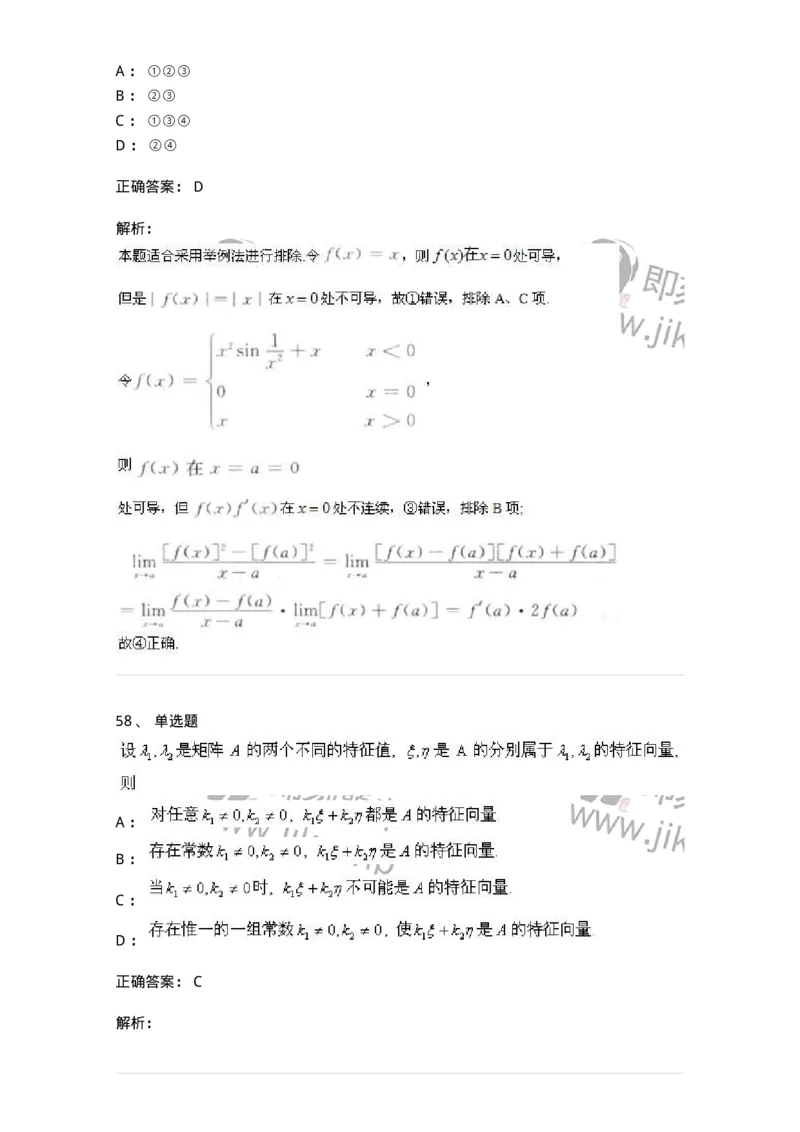 A： ①②③
B： ②③
C： ①③④
D： ②④
正确答案： D
解析：
本题适合采用举例法进行排除.令 f(x) = x，则 f(x)在x=0处可导，
但是| f(x) |=| x | 在x=0处不可导，故①错误，排除 A、C 项.
令f(x) = { x² sin 1/x² + x  x < 0
0  x = 0 ，
x  x > 0
则 f(x) 在 x = a = 0
处可导，但 f(x)f′(x)在x=0处不连续，③错误，排除B项;
lim x→a [f(x)]² − [f(a)]² / x − a = lim x→a [f(x) − f(a)][f(x) + f(a)] / x − a
= lim x→a f(x) − f(a) / x − a · lim x→a [f(x) + f(a)] = f′(a) · 2f(a)
故④正确.
58 、 单选题
设λ₁,λ₂是矩阵 A 的两个不同的特征值, ξ,η是 A 的分别属于λ₁,λ₂的特征向量,
则
A： 对任意k₁ ≠ 0,k₂ ≠ 0，k₁ξ+k₂η都是A的特征向量.
B： 存在常数k₁ ≠ 0,k₂ ≠ 0，k₁ξ+k₂η是A的特征向量.
C： 当k₁ ≠ 0,k₂ ≠ 0时, k₁ξ+k₂η不可能是A的特征向量.
D： 存在惟一的一组常数k₁ ≠ 0,k₂ ≠ 0，使k₁ξ+k₂η是A的特征向量.
正确答案： C
解析：